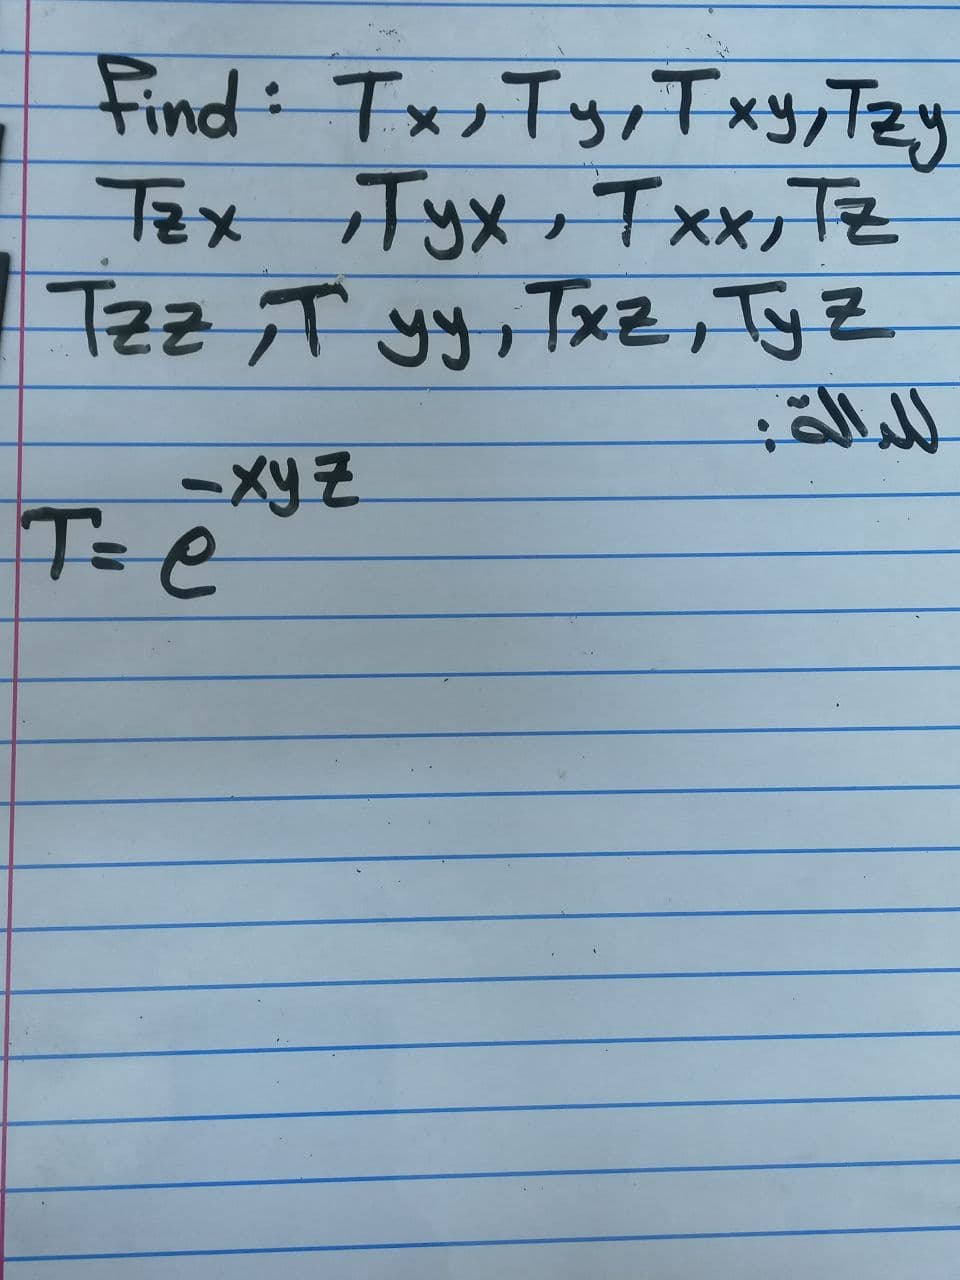 Find: Tx, Ty, Txy, Tzy
Tzx, Tyx, Txx, Tz
Tzz, Tyy, Txz, Tyz
للدالة:
T = e^-xyz